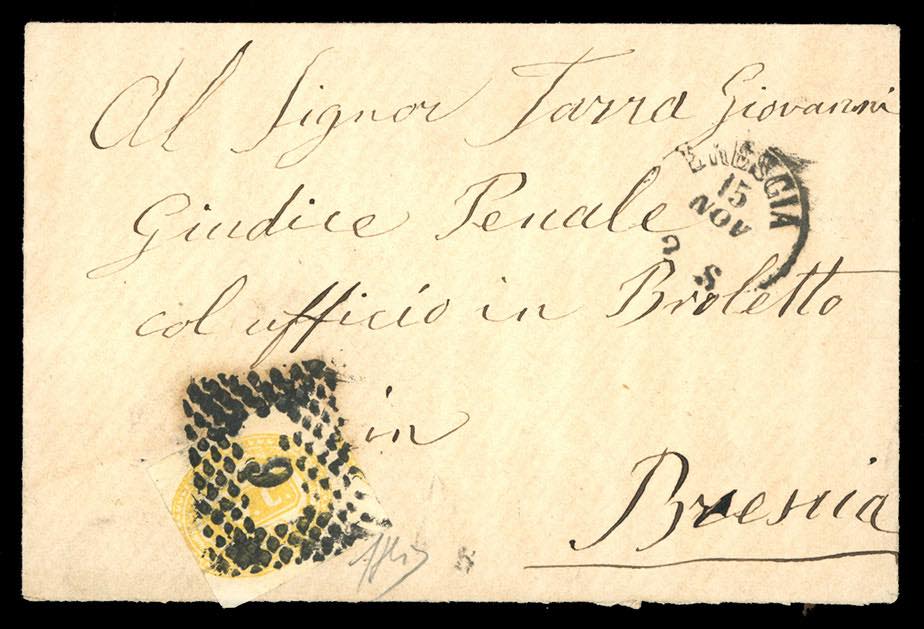 Al Signor Tarra Giovanni
BRESCIA
15
NOV
S
Giudice Penale
col ufficio in Broletto
in
Brescia
6